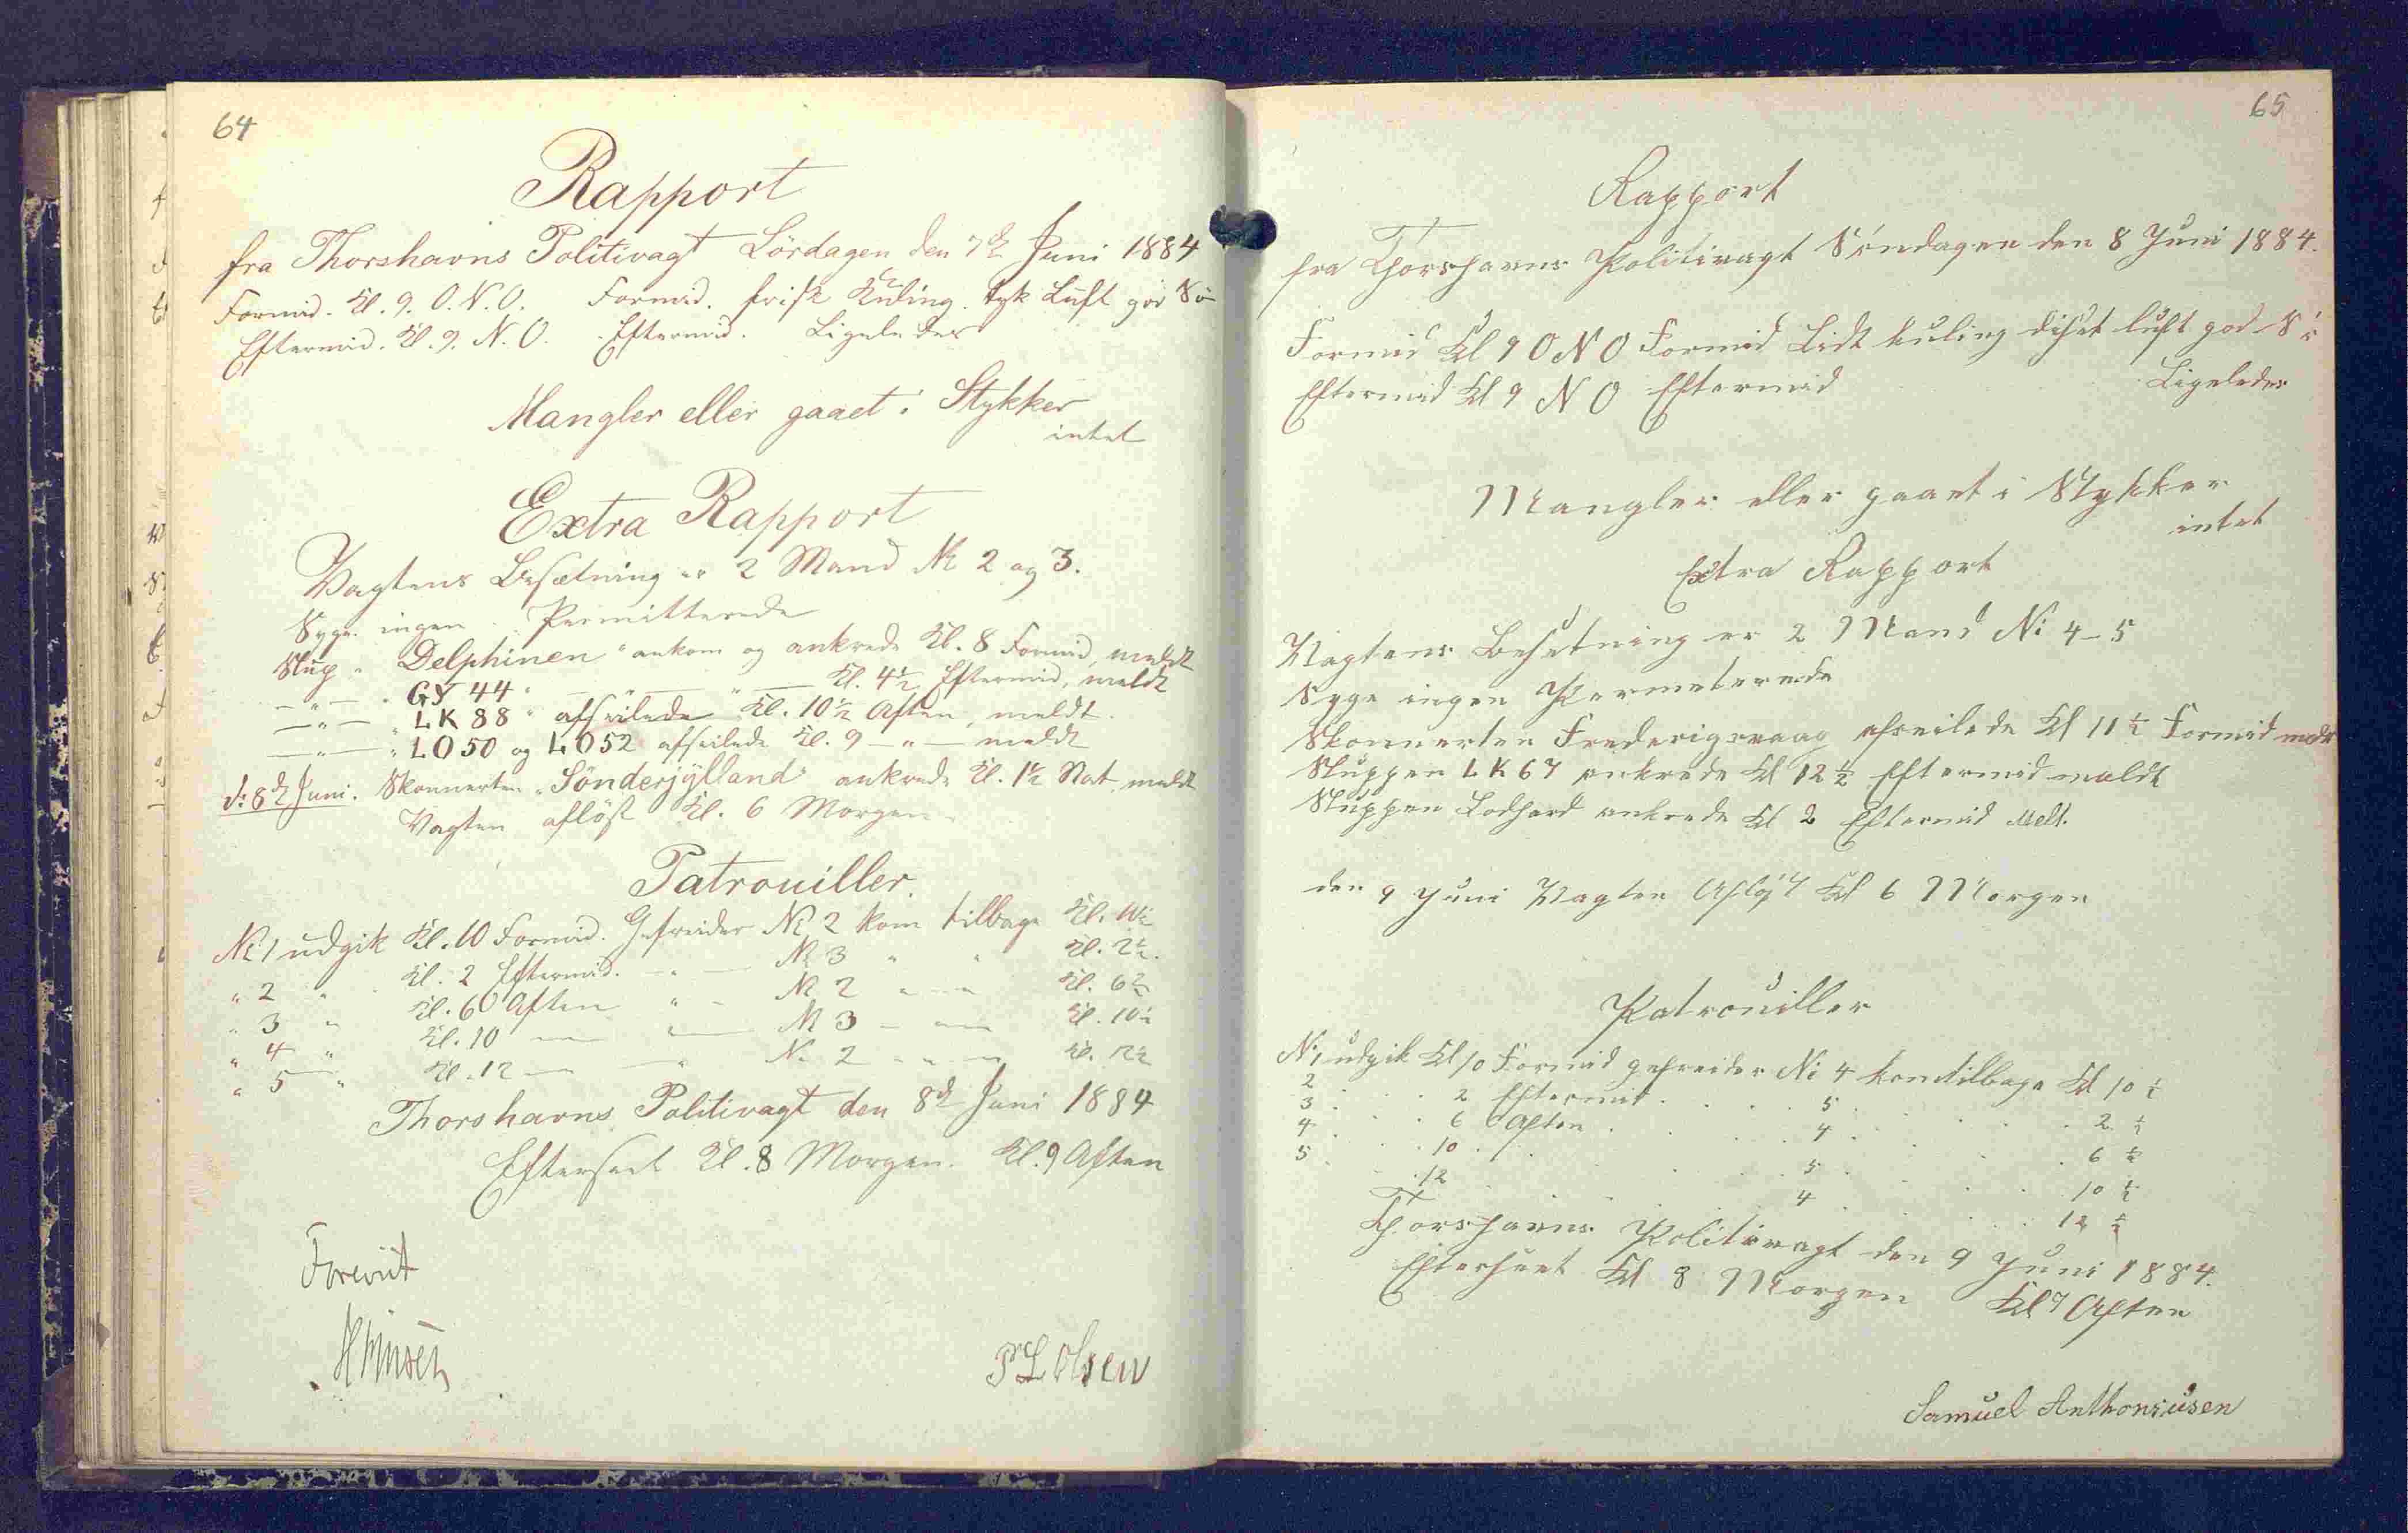 64
Rapport
fra Thorshavns Politivagt Lördagen den 7de Juni 1884
Formid. Kl. 9. O.N.O. Formid. frisk Kuling. tyk Luft god Sö
Eftermid. Kl. 9. N.O. Eftermid. Ligeledes
Mangler eller gaaet i Stykker
intet
Extra Rapport
Vagtens Besætning er 2 Mand № 2 og 3.
Syge ingen. Permitterede
Slup „Delphinen“ ankom og ankrede Kl. 8 Formid, meldt
— „ — „GY 44“ — „ — Kl. 4½ Eftermid, meldt
— „ — „LK 88“ afseilede Kl. 10½ Aften, meldt.
— „ — „LO 50 og LO 52 afseilede Kl. 9 — „ — meldt
d: 8de Juni. Skonnerten „Sönderjylland“ ankrede Kl. 1½ Nat, meldt
Vagten aflöst Kl. 6 Morgen.
Patrouiller.
№ 1 udgik Kl. 10 Formid. Gefreider № 2 kom tilbage Kl. 10½
„ 2 „ Kl. 2 Eftermid. — „ — № 3 „ „ Kl. 2½.
„ 3 „ Kl. 6 Aften „ — № 2 „ — „ Kl. 6½
„ 4 „ Kl. 10 — — № 3 — — Kl. 10½
„ 5 „ Kl. 12 — — „ № 2 — „ — Kl. 12½
Thorshavns Politivagt den 8de Juni 1884
Efterseet Kl. 8 Morgen. Kl. 9 Aften
Forevist
P L Olsen
65
Rapport
fra Thorshavns Politivagt Söndagen den 8 Juni 1884.
Formid Kl 9 O N O Formid Lidt kuling diset luft god Sö
Eftermid Kl 9 N O Eftermid Ligeledes
Mangler eller gaaet i Stykker
intet
Extra Rapport
Vagtens Besetning er 2 Mand № 4-5
Syge ingen Permeterede
Skonnerten Frederigsvaag afseilede Kl 11½ Formid meldt
Sluppen LK 67 ankrede Kl 12½ Eftermid meldt
Sluppen ankrede Kl 2 Eftermid Meldt.
den 9 Juni Vagten Afløst Kl 6 Morgen
Patrouiller
№ 1 udgik Kl 10 Formid gefreider № 4 kom tilbage Kl 10 ½
2 . . . 2 Eftermid . . . 5 . . . 2 ½
3 . . . 6 Aften . . . 4 . . . 6 ½
4 . . . 10 . . . 5 . . . 10 ½
5 . . . 12 . . . 4 . . . 12 ½
Thorshavns Politivagt den 9 Juni 1884.
Efterseet Kl 8 Morgen Kl 9 Aften
Samuel Anthoniusen